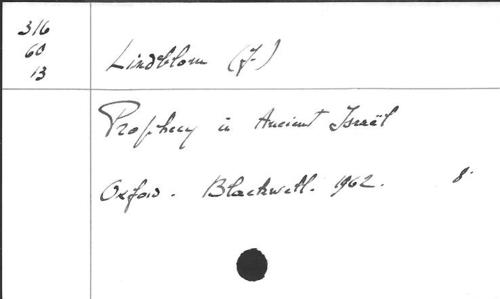 316
60
13
Lindblom (J.)
Prophecy in Ancient Israël
Oxford. Blackwell. 1962. 8.